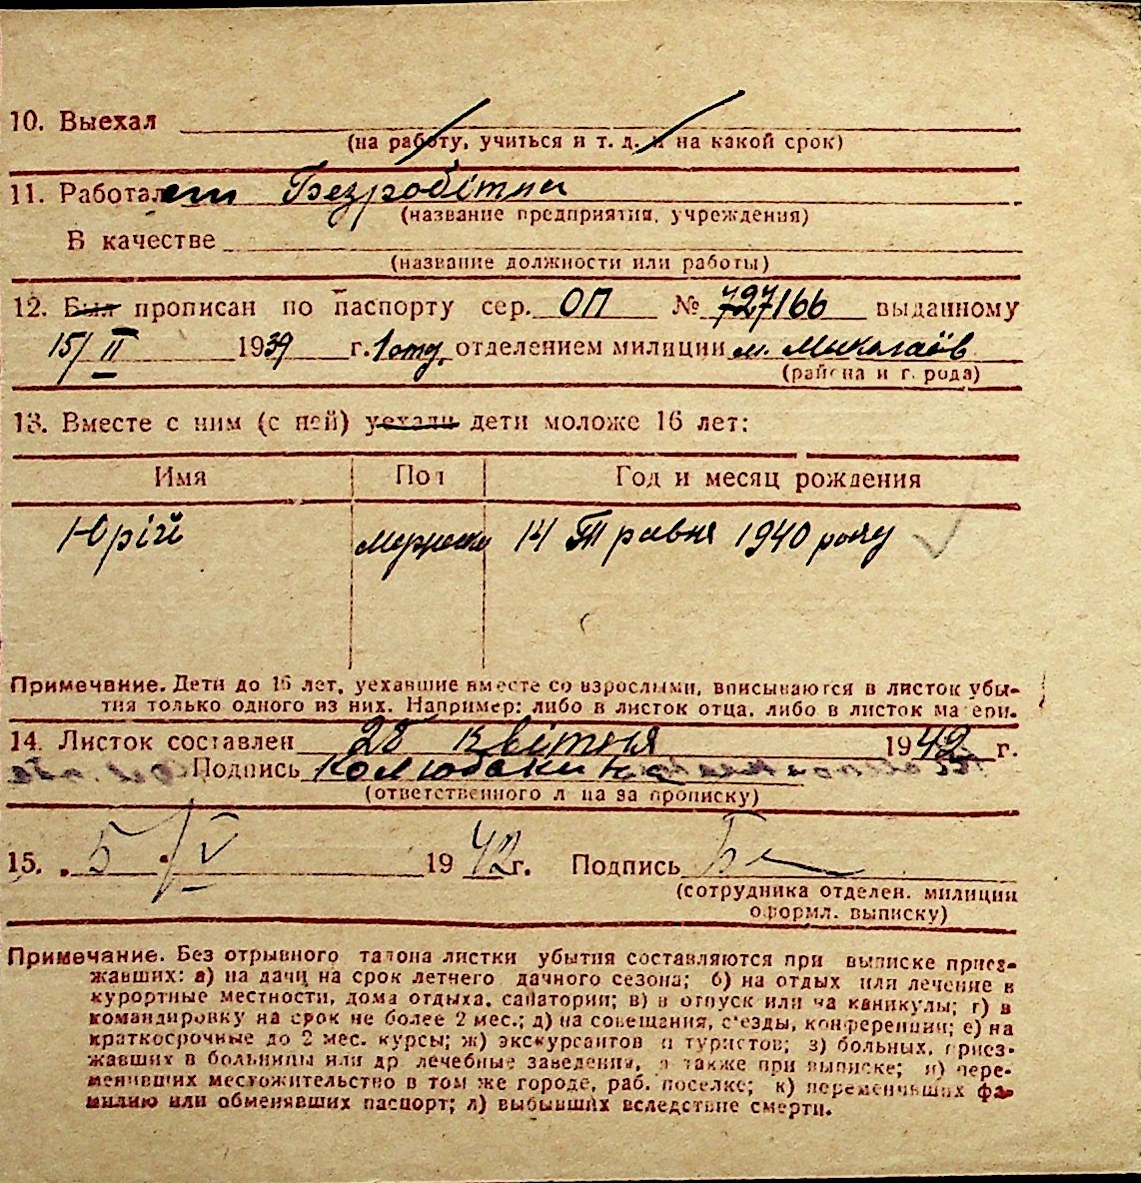 10. Выехал
(на работу, учиться и т. д. и на какой срок)
11. Работает Безробітна
(название предприятия, учреждения)
В качестве
(название должности или работы)
12. Был прописан по паспорту сер. ОП № 727166 выданному
15/II 1939 г. 1 отд. отделением милиции м. Миколаїв
(района и города)
13. Вместе с ним (с ней) уехали дети моложе 16 лет:
Имя Пол Год и месяц рождения
Юрій 14 Травня 1940 року
Примечание. Дети до 16 лет, уехавшие вместе со взрослыми, вписываются в листок убы-
тия только одного из них. Например: либо в листок отца, либо в листок матери.
14. Листок составлен 28 квітня 1942 г.
Подпись Колюбакина
(ответственного лица за прописку)
15. „5 "/V 1942 г. Подпись
(сотрудника отделен. милиции
оформл. выписку)
Примечание. Без отрывного талона листки убытия составляются при выписке приез-
жавших: а) на дачи на срок летнего дачного сезона; б) на отдых или лечение в
курортные местности, дома отдыха, санатории; в) в отпуск или на каникулы; г) в
командировку на срок не более 2 мес.; д) на совещания, с'езды, конференции; е) на
краткосрочные до 2 мес. курсы; ж) экскурсантов и туристов; з) больных, приез-
жавших в больницы или др лечебные заведения, а также при выписке; и) пере-
менивших местожительство в том же городе, раб. поселке; к) переменивших фа-
милию или обменявших паспорт; л) выбывших вследствие смерти.